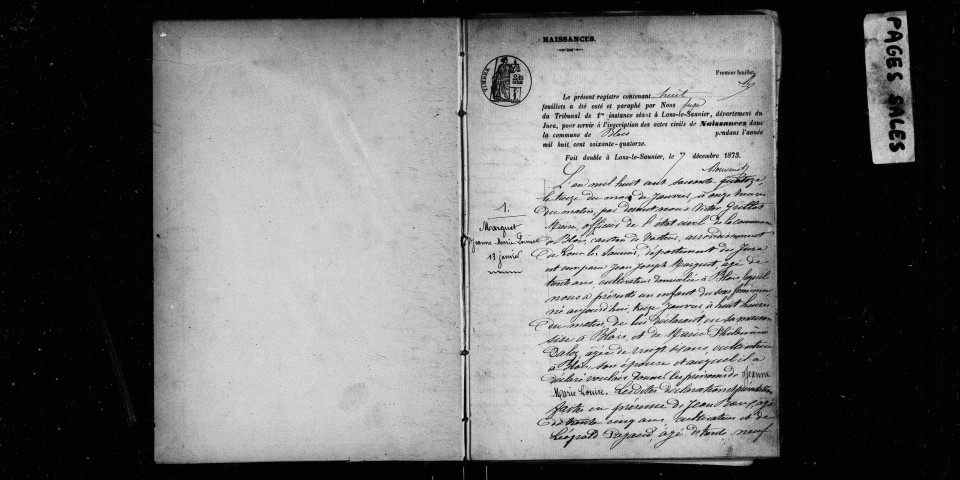 NAISSANCES.
Premier feuillet.
TIMBRE
Le présent registre contenant huit
feuillets a été coté et paraphé par Nous Juge
du Tribunal de 1re instance séant à Lons-le-Saunier, département du
Jura, pour servir à l'inscription des actes civils de Naissances dans
la commune de Blois pendant l'année
mil huit cent soixante-quatorze.
Fait double à Lons-le-Saunier, le 7 décembre 1873.
L'an mil huit cent soixante quatorze,
le treize du mois de Janvier, à onze heures
du matin, par devant nous Victor Guillot
Maire, officier de l'état civil de la commune
de Blois, canton de Voiteur, arrondissement
de Lons le Saunier, département du Jura
est comparu Jean Joseph Marguet, âgé de
trente ans, cultivateur domicilié à Blois, lequel
nous a présenté un enfant du sexe féminin
né aujourd'hui, treize Janvier, à huit heures
du matin de lui déclarant, en sa maison
sise à Blois, et de Marie Philomène
Daloz, âgée de vingt ans, cultivatrice
à Blois, son épouse et auquel il a
déclaré vouloir donner les prénoms de Jeanne
Marie Louise. Lesdites déclaration et présentation
faites en présence de Jean âgé
de trente cinq ans, cultivateur et de
Léopold âgé de trente neuf
1.
Marguet
Jeanne-Marie-Louise
13 janvier
PAGES SALES